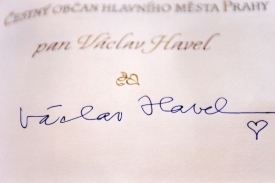 ČESTNÝ OBČAN HLAVNÍHO MĚSTA PRAHY
pan Václav Havel
Václav Havel